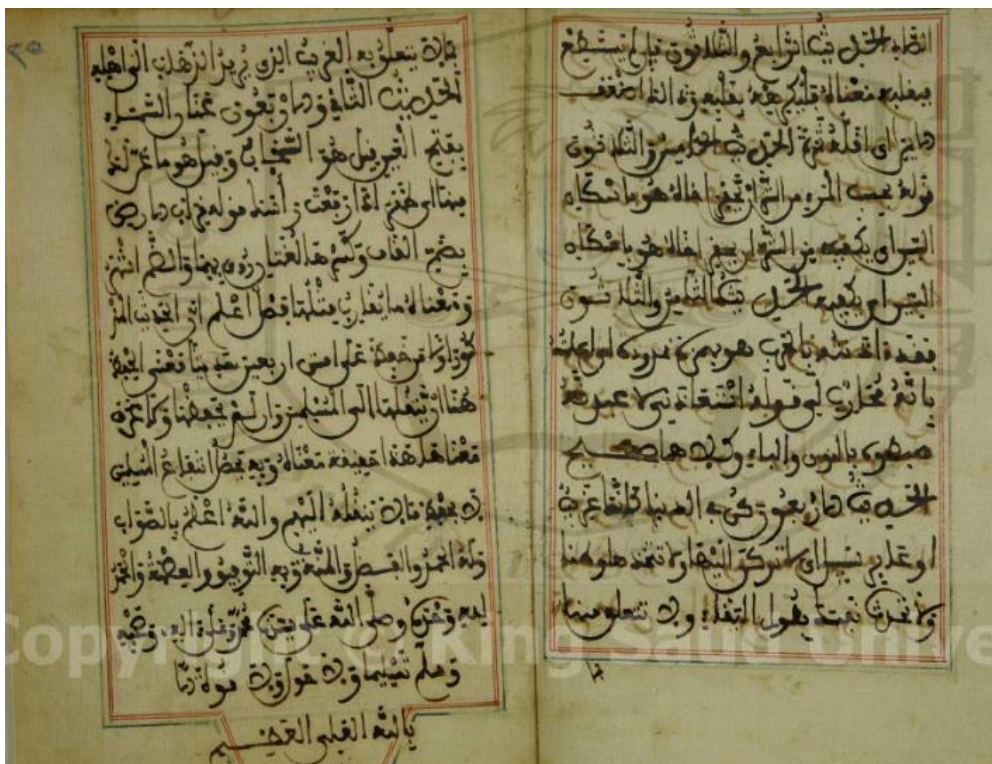 اتقاه الحديث الرابع والثلاثون فإن لم يستطع
فبقلبه معناه فليكرهه بقلبه وذلك أضعف
الايمان أي أقله ثمرة الحديث الخامس والثلاثون
قوله بحسب المرء من الشر أن يحقر أخاه هو باسكان
السين أي يكفيه من الشر أن يحقر أخاه هو باسكان
السين أي يكفيه الحديث الثامن والثلاثون
فقد ءاذنته بالحرب هو بهمزة ممدودة أي أعلمته
بأنه محارب لي قوله استعاذني لأعيذنه
ضبطوه بالنون والباء وكلاهما صحيح
الحديث الأربعون كن في الدنيا كأنك غريب
أو عابر سبيل أي لا تركن إليها ولا تتخذها وطنا
ولا تحدث نفسك بطول البقاء ولا تتعلق منها
بما لا يتعلق به الغريب الذي يريد الذهاب إلى أهله
الحديث الثاني والأربعون عنان السماء
بفتح العين قيل هو السحاب وقيل هو ما عن لك
منها أي ظهر إذا رفعت رأسك قوله بقراب الأرض
بضم القاف وكسرها لغتان روي بهما والضم أشهر
ومعناه ما يقارب مثلها فصل اعلم أن الحديث المذ
كور أولا من حفظ على أمتي أربعين حديثا فمعنى الحفظ
هنا أن ينقلها إلى المسلمين وإن لم يحفظها ولا عرف
معناها هذا حقيقة معناه وبه يحصل انتفاع المسلمين
لا بحفظ ما لا ينقله إليهم والله أعلم بالصواب
وله الحمد والفضل والمنة وبه التوفيق والعصمة والحمد
لله وحده وصلى الله على سيدنا محمد وعلى آله وصحبه
وسلم تسليما ولا حول ولا قوة إلا
بالله العلي العظيم
Copyright © King Saud Unive